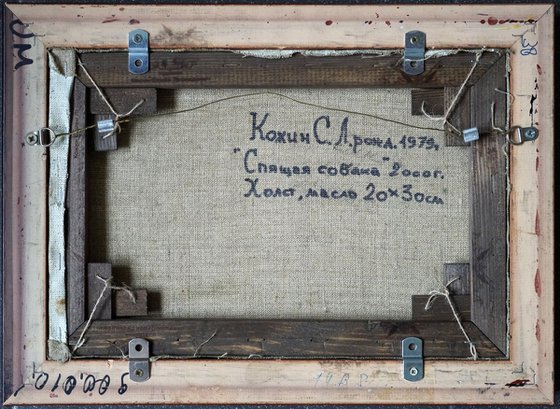 Кохин С. Л. рожд. 1979.
"Спящая собака" 2000г.
Холст, масло 20×30см